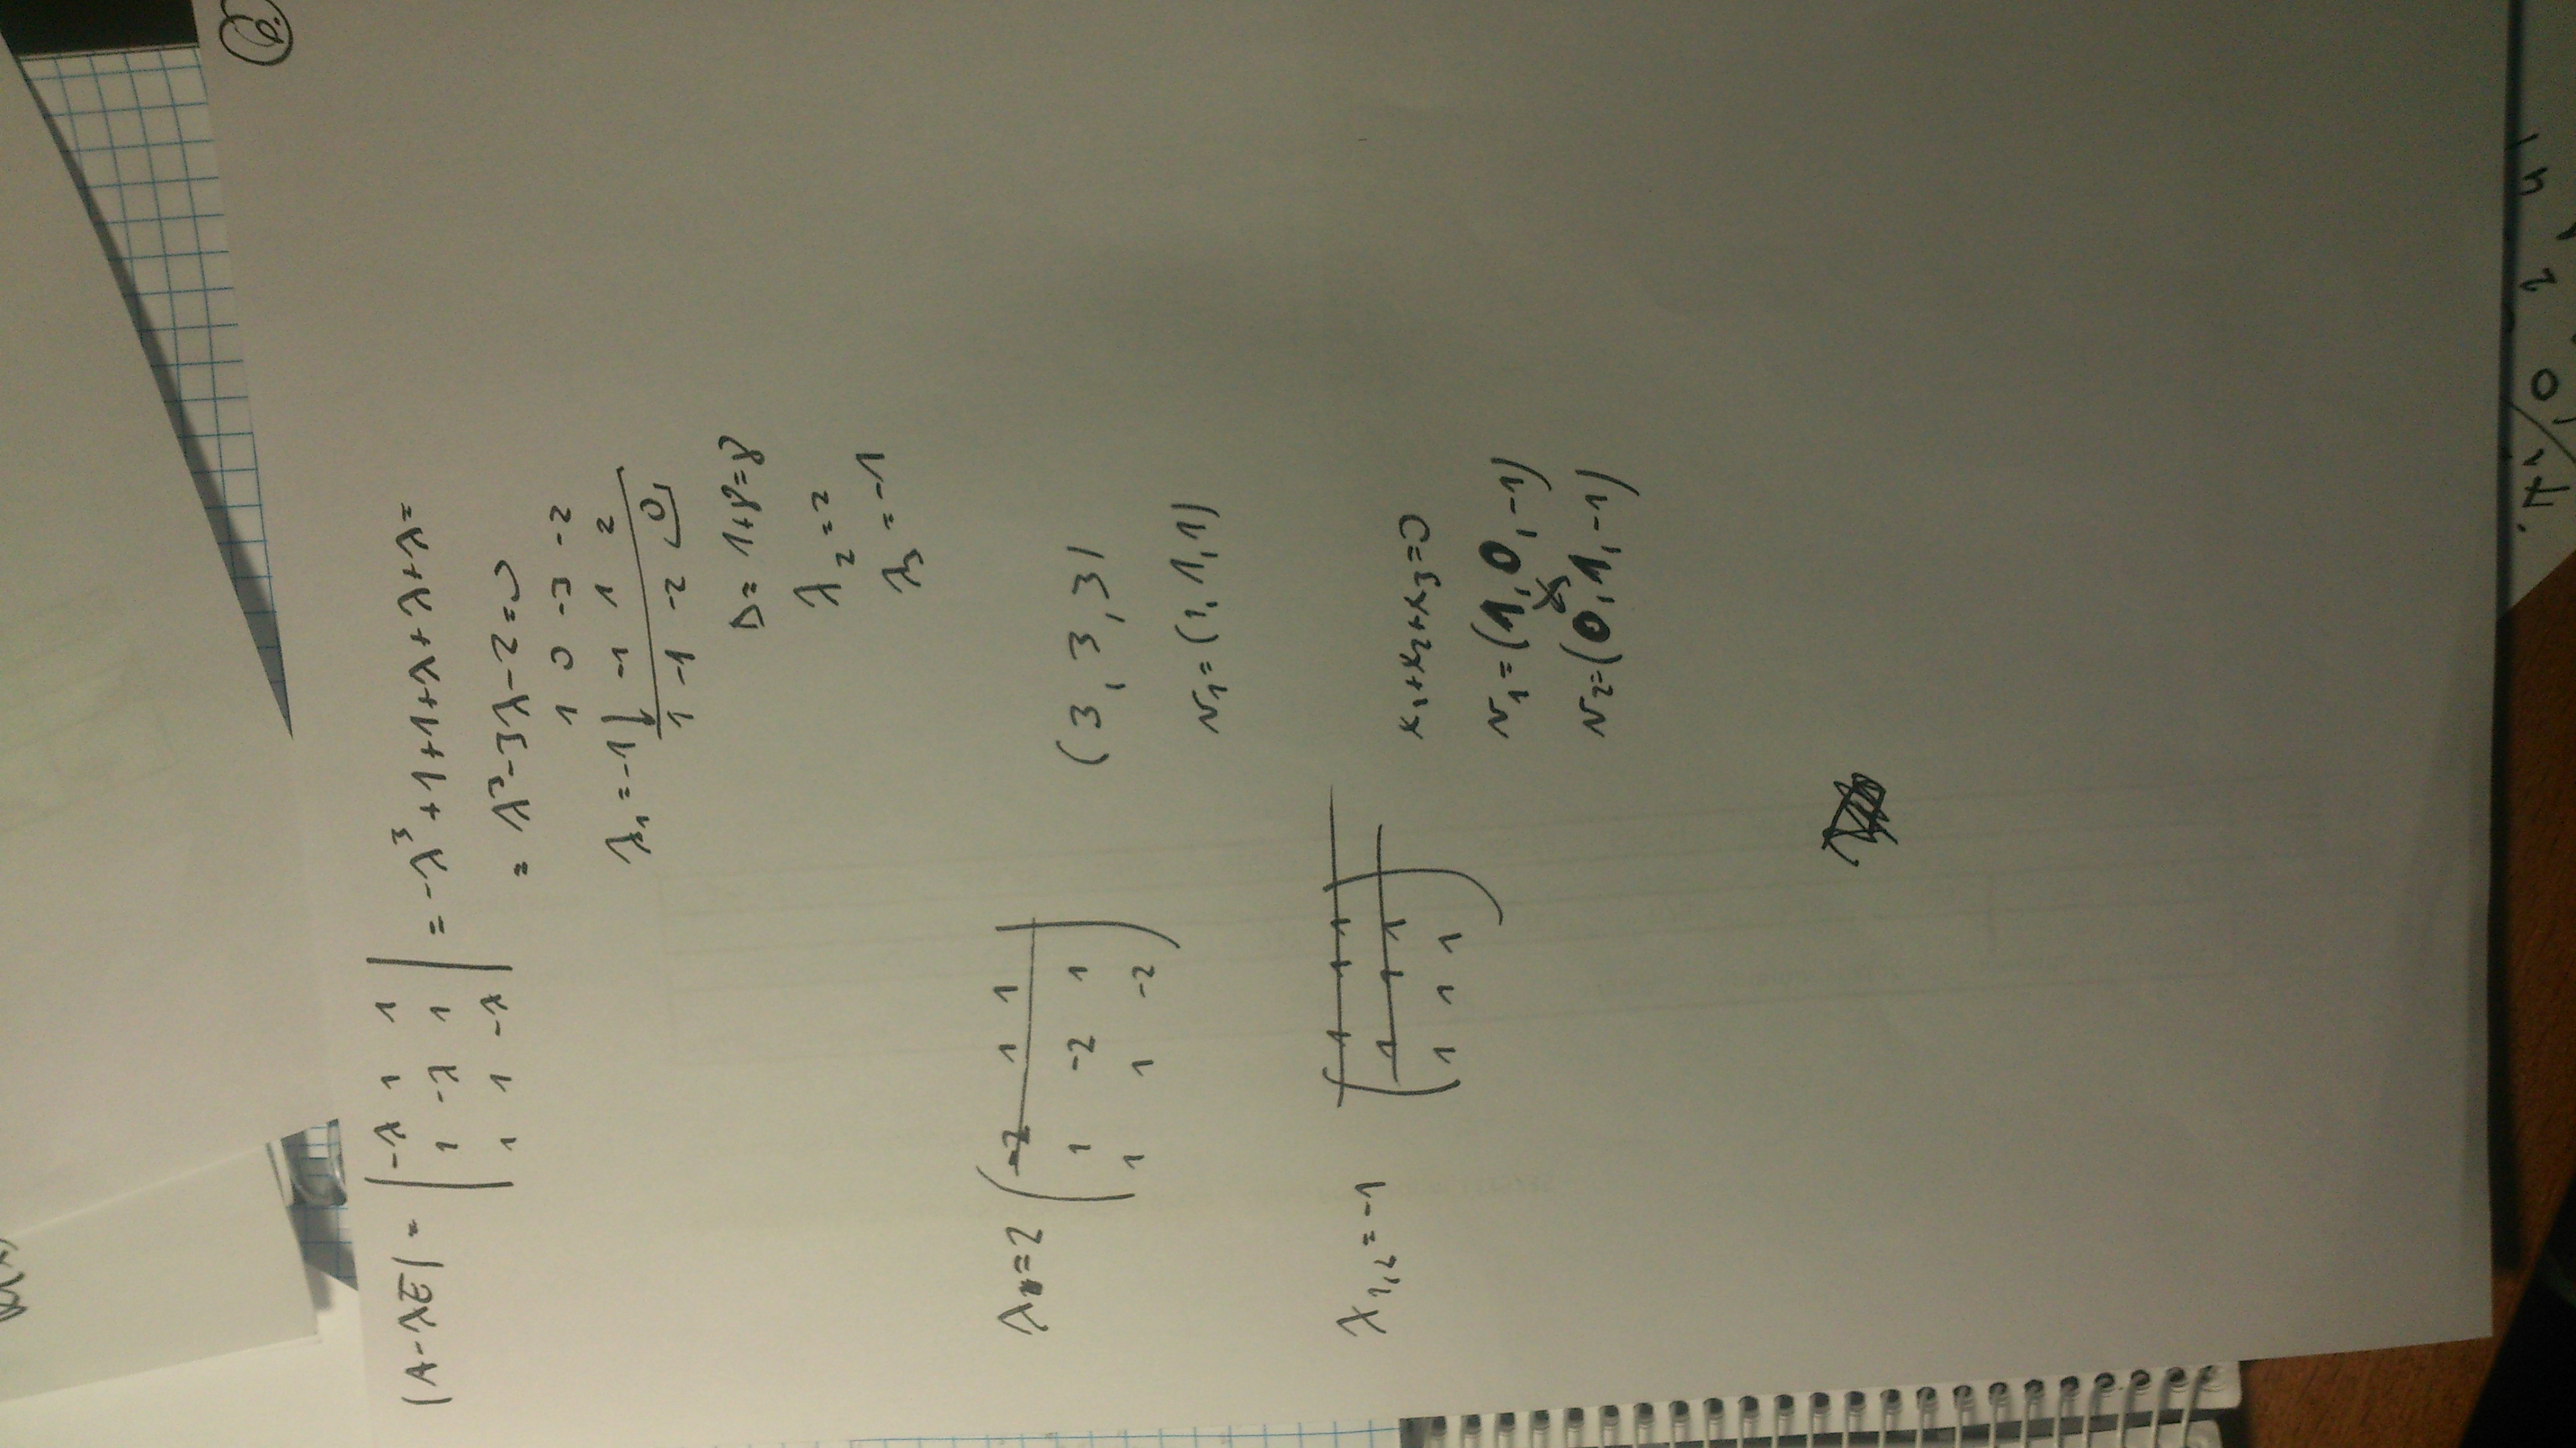 6.
|A-λE| = | -λ 1 1 | = -λ³+1+1+λ+λ+λ=
1 -λ 1
1 1 -λ
= λ³-3λ-2=0
1 0 -3 -2
λ₁=-1↓ -1 1 2
1 -1 -2 0
D= 1+8=8
λ₂=2
λ₃=-1
λ=2 ( -2 1 1 )
1 -2 1
1 1 -2
(3, 3, 3)
v₁=(1, 1, 1)
λ₁,₂=-1 ( 1 1 1 )
1 1 1
1 1 1
x₁+x₂+x₃=0
v₁=(1, 0, -1)
v₂=(0, 1, -1)
0 2